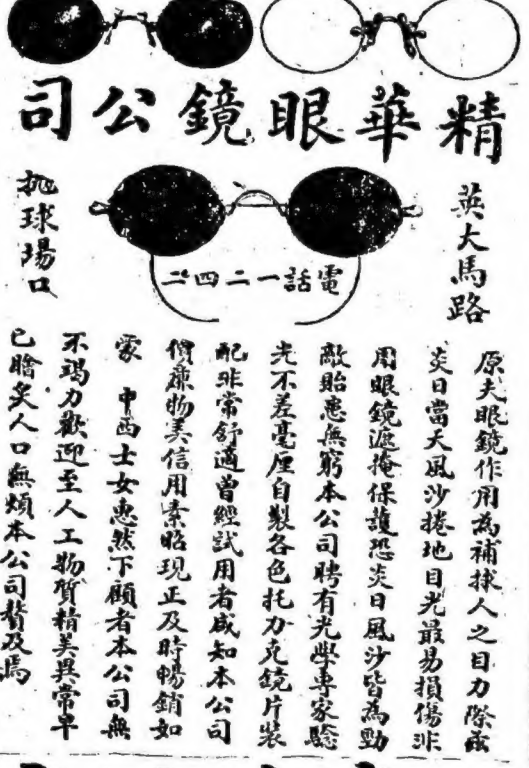 精華眼鏡公司
英大馬路
拋球場口
電話一二四二
原夫眼鏡作用為補捄人之目力際茲
炎日當天風沙捲地目光最易損傷非
用眼鏡遮掩保護恐炎日風沙皆為勁
敵貽惠無窮本公司聘有光學專家驗
光不差毫厘自製各色托力克鏡片裝
配非常舒適曾經試用者咸知本公司
價廉物美信用素昭現正及時暢銷如
蒙中西士女惠然下顧者本公司無
不竭力歡迎至人工物質精美異常早
已膾炙人口無煩本公司贅及焉